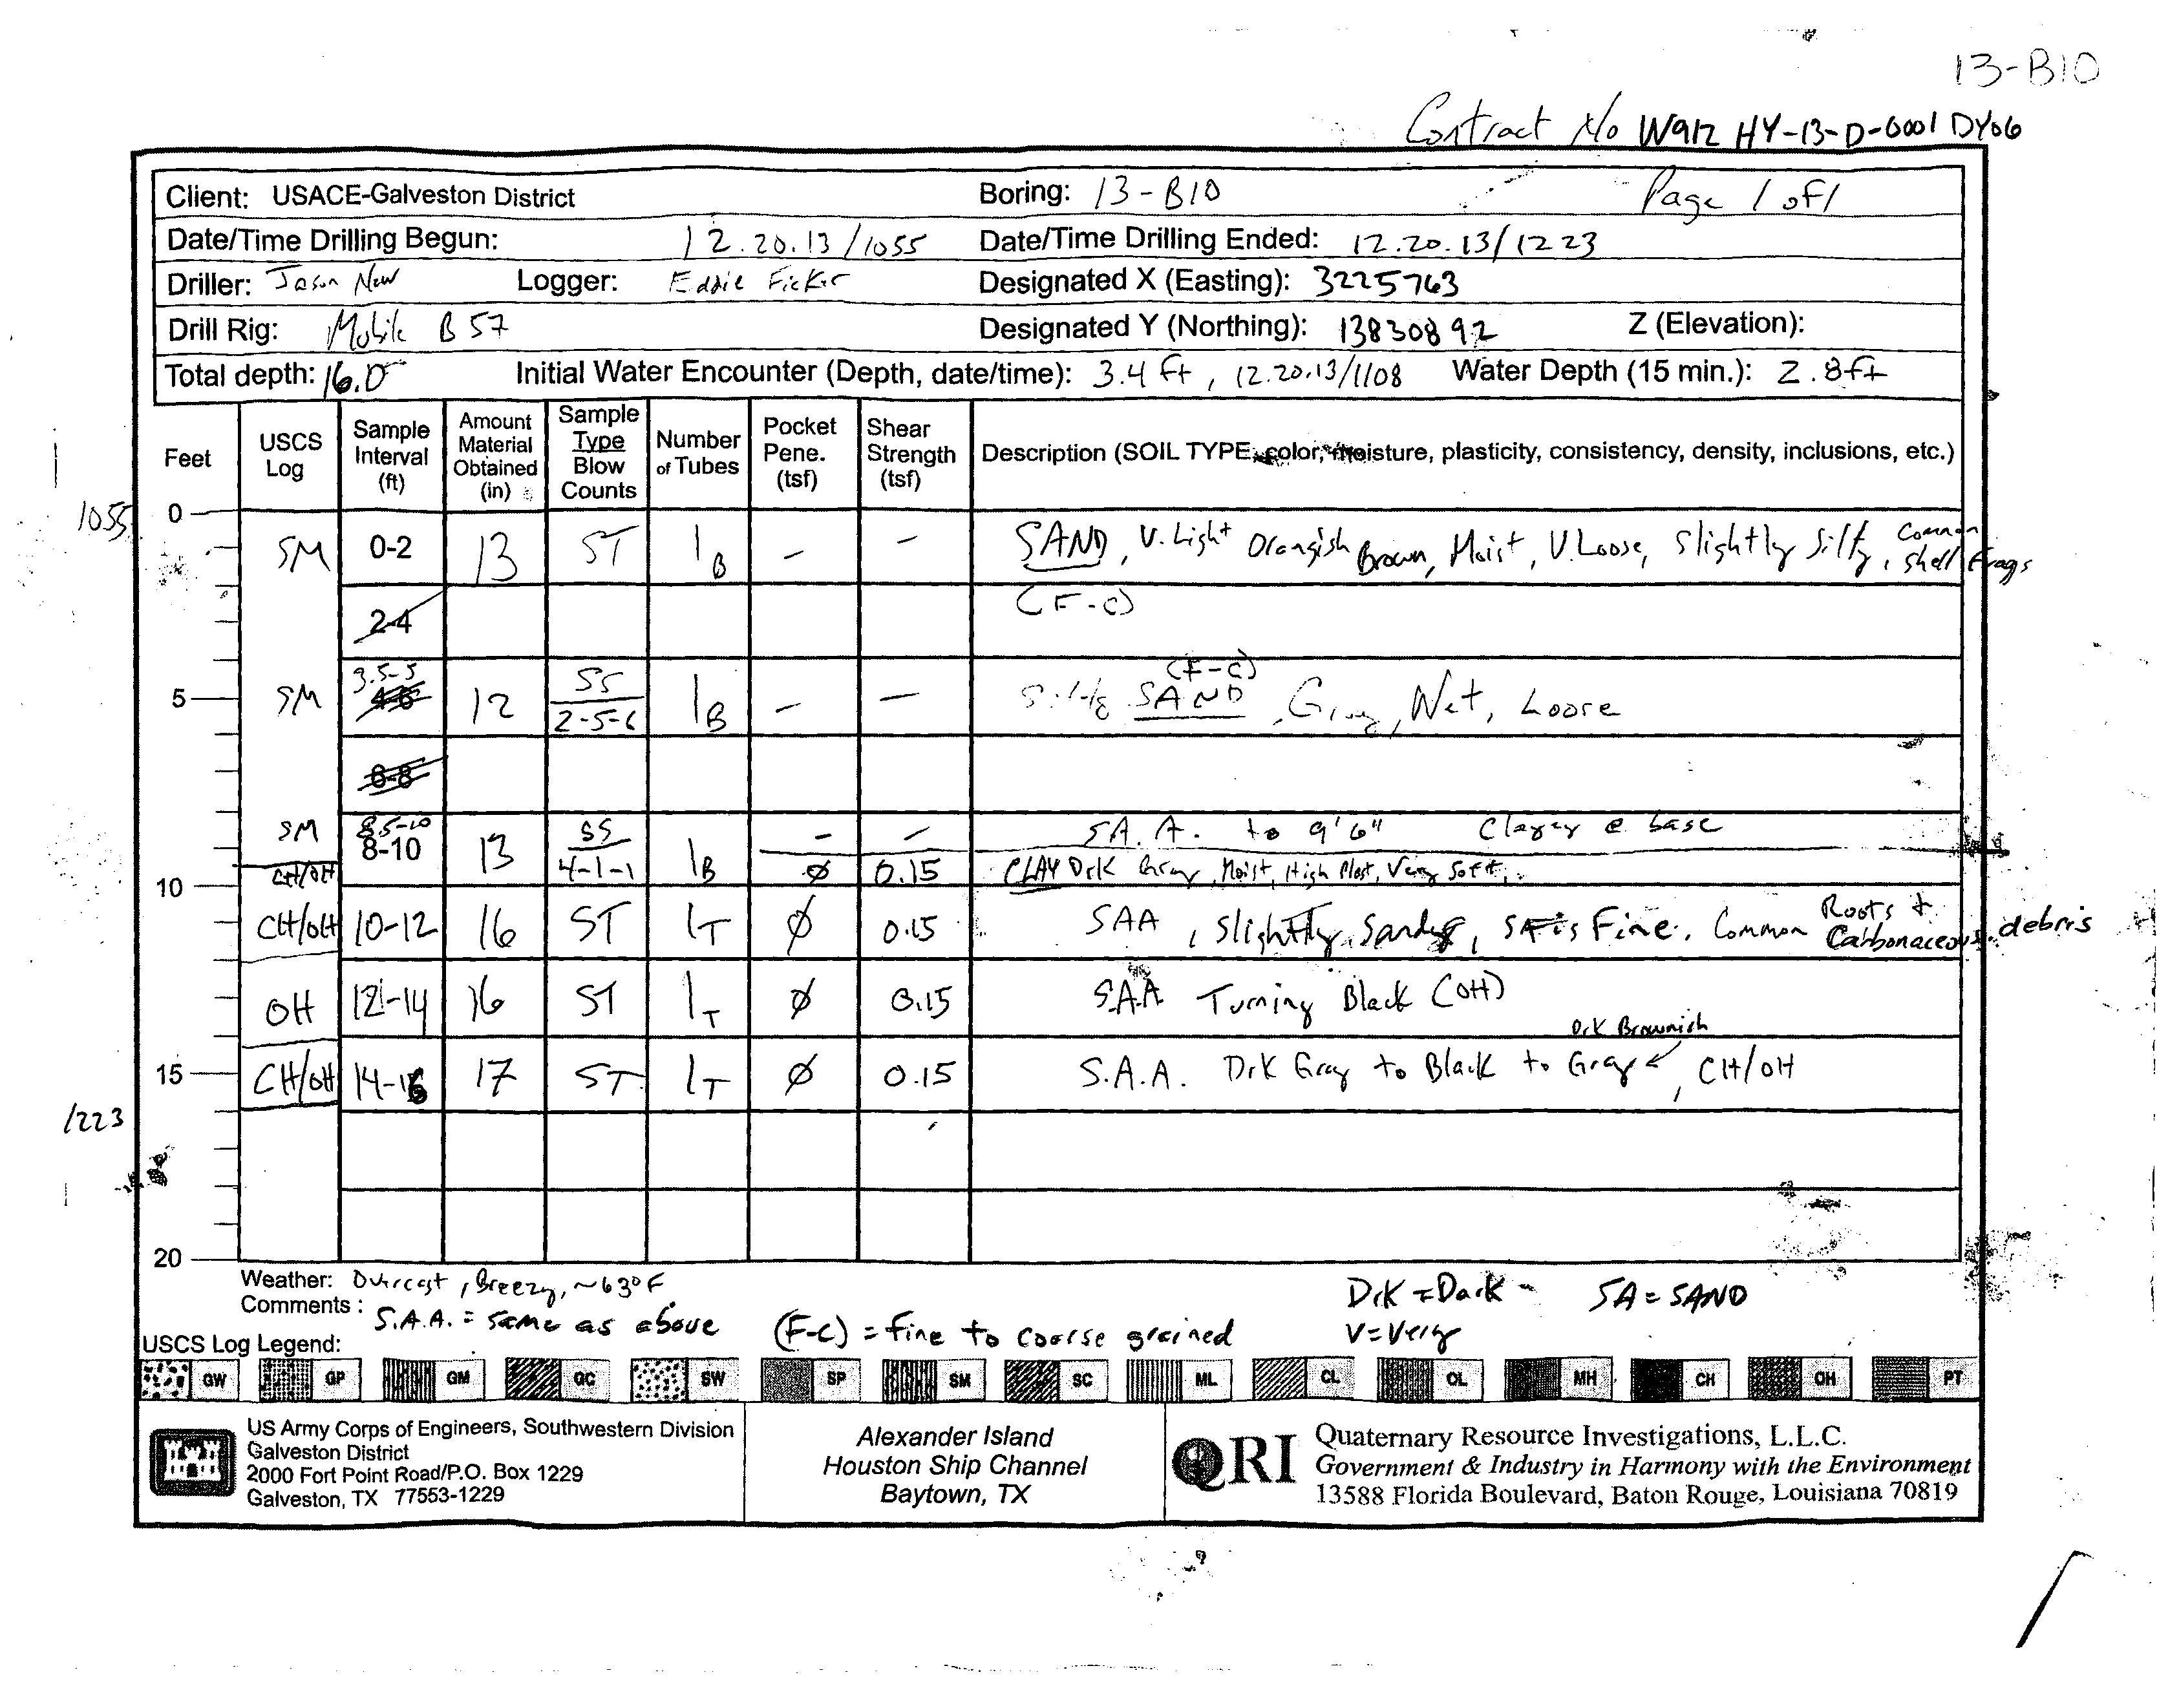 13-B10
Contract No W912 HY-13-D-0001 DY06
Client: USACE-Galveston District Boring: 13-B10 Page 1 of 1
Date/Time Drilling Begun: 12.20.13/1055 Date/Time Drilling Ended: 12.20.13/1223
Driller: Jason New Logger: Eddie Ficker Designated X (Easting): 3225763
Drill Rig: Mobile B57 Designated Y (Northing): 13830892 Z (Elevation):
Total depth: 16.0 Initial Water Encounter (Depth, date/time): 3.4 ft, 12.20.13/1108 Water Depth (15 min.): 2.8ft
Feet USCS Log Sample Interval (ft) Amount Material Obtained (in) Sample Type Blow Counts Number of Tubes Pocket Pene. (tsf) Shear Strength (tsf) Description (SOIL TYPE, color, moisture, plasticity, consistency, density, inclusions, etc.)
1055 0
SM 0-2 13 ST 1B - - SAND, V. Light Orangish Brown, Moist, V. Loose, Slightly Silty, Common Shell Frags
2-4 (F-C)
5 SM 3.5-5 4-6 12 SS 2-5-6 1B - - Silty SAND (F-C), Gray, Wet, Loose
6-8
SM 8.5-10 8-10 13 SS 4-1-1 1B - - S.A.A. to 9'6" Clayey @ base
10 CH/OH Ø 0.15 CLAY Drk Gray, Moist, High Plast, Very Soft,
CH/OH 10-12 16 ST 1T Ø 0.15 SAA, Slightly Sandy, SA is Fine. Common Roots + Carbonaceous debris
OH 12-14 16 ST 1T Ø 0.15 S.A.A. Turning Black (OH)
15 CH/OH 14-16 17 ST 1T Ø 0.15 S.A.A. Drk Gray to Black to Drk Brownish Gray, CH/OH
1223
20
Weather: Overcast, Breezy, ~63°F Drk = Dark SA = SAND
Comments: S.A.A. = same as above (F-C) = fine to coarse grained V = Very
USCS Log Legend:
GW GP GM GC SW SP SM SC ML CL OL MH CH OH PT
US Army Corps of Engineers, Southwestern Division
Galveston District
2000 Fort Point Road/P.O. Box 1229
Galveston, TX 77553-1229
Alexander Island
Houston Ship Channel
Baytown, TX
QRI
Quaternary Resource Investigations, L.L.C.
Government & Industry in Harmony with the Environment
13588 Florida Boulevard, Baton Rouge, Louisiana 70819